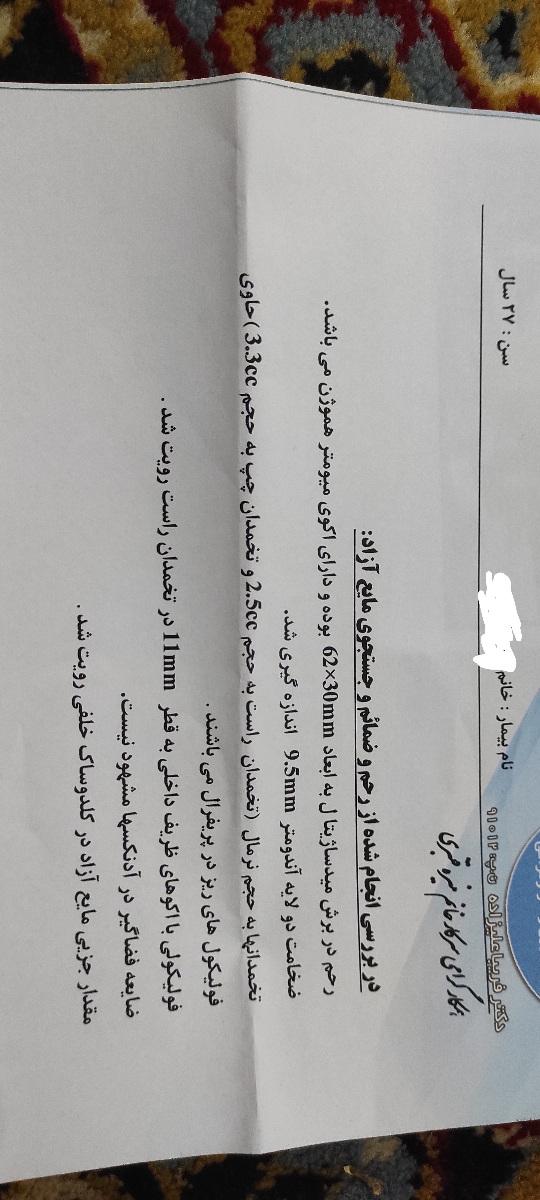 دکتر فریبا علیزاده ن.پ ۹۱۰۱۳
همکار گرامی سرکار خانم
نام بیمار : خانم
سن : ۲۷ سال
در بررسی انجام شده از رحم و ضمائم و جستجوی مایع آزاد:
رحم در برش میدساژیتال به ابعاد 62×30mm بوده و دارای اکوی میومتر هموژن می باشد.
ضخامت دو لایه آندومتر 9.5mm اندازه گیری شد.
تخمدانها به حجم نرمال (تخمدان راست به حجم 2.5cc و تخمدان چپ به حجم 3.3cc )حاوی
فولیکول های ریز در پریفرال می باشند .
فولیکولی با اکوهای ظریف داخلی به قطر 11mm در تخمدان راست رویت شد .
ضایعه فضاگیر در آدنکسها مشهود نیست.
مقدار جزیی مایع آزاد در کلدوساک خلفی رویت شد .